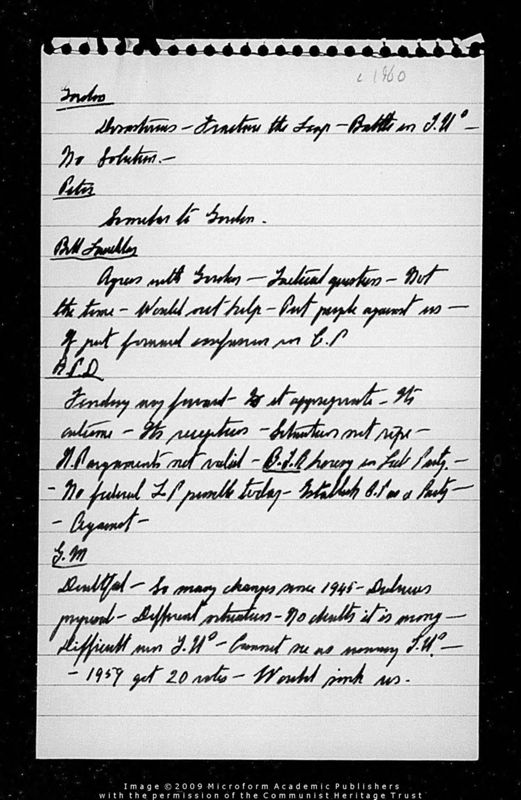 c 1960
Gordon
Disastrous - Fracture the Leap - Battle in T.U° -
No Solution. -
Peter
Similar to Gordon.
Bill Lauchlan
Agrees with Gordon - Tactical question - Not
the time - Would not help - Put people against us -
If put forward confusion in C.P
R.P.D
Finding way forward - Is it appropriate - Its
outcome - Its reception - Situation not ripe -
H.P arguments not valid - B.T.R heresy in Party. -
- No federal L.P possible today - Establish C.P as a Party -
- Against -
G.M
Doubtful - So many changes since 1945 -
proposal - Different situation - No doubts it is wrong -
Difficult now T.U° - Cannot see us winning T.U°. -
- 1959 get 20 votes - Would sink us.
Image ©2009 Microform Academic Publishers
with the permission of the Communist Heritage Trust